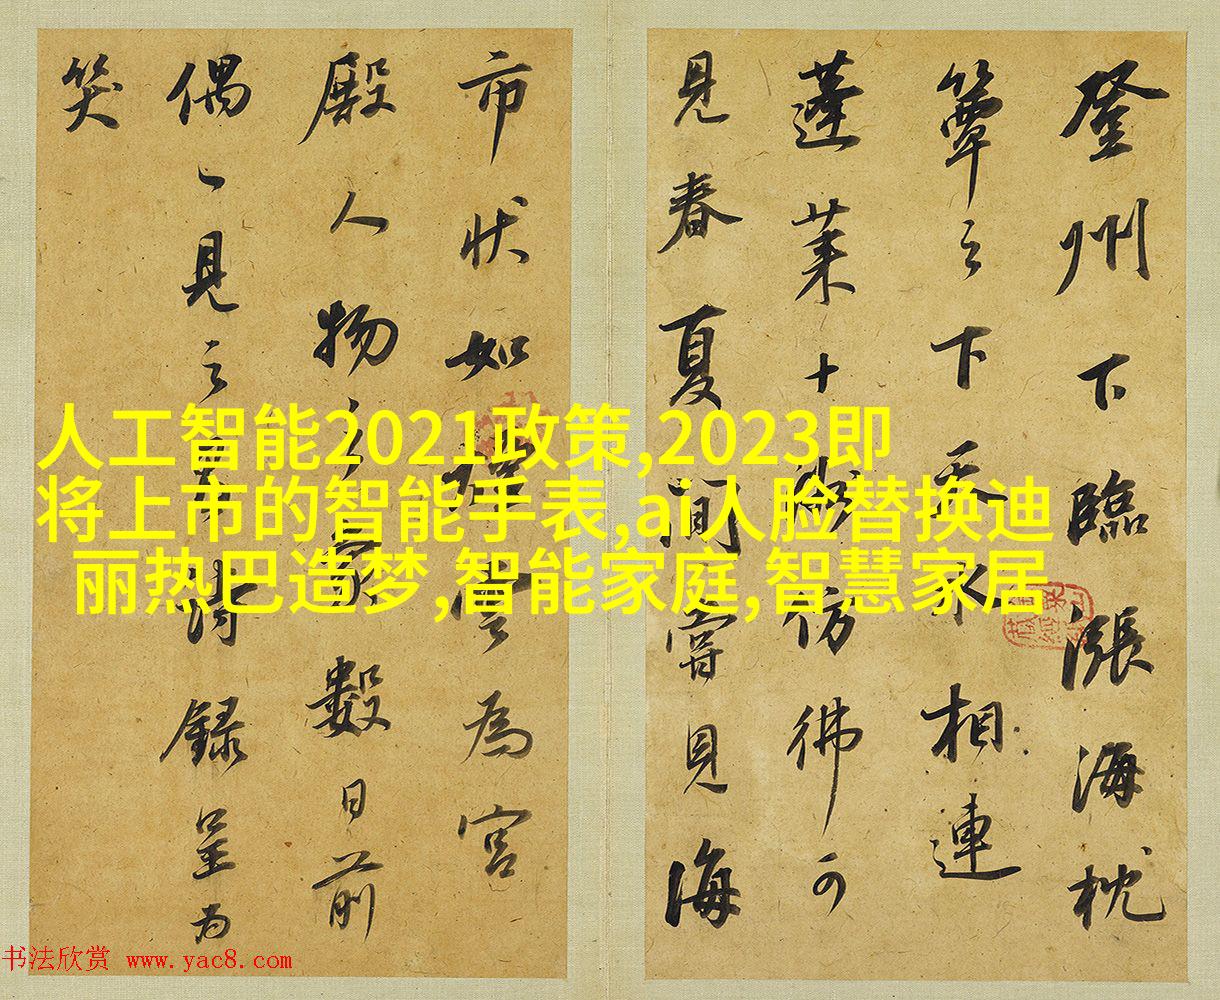 登州下臨漲海枕
簟之下天水相連
蓬萊十彷彿可
見春夏間嘗見海
市狀如雲為宮
殿人物之象數日前
偶一見之詩錄呈為
笑
人工智能2021政策,2023即
将上市的智能手表,ai人脸替换迪
丽热巴造梦,智能家庭,智慧家居
书法欣赏 www.yac8.com